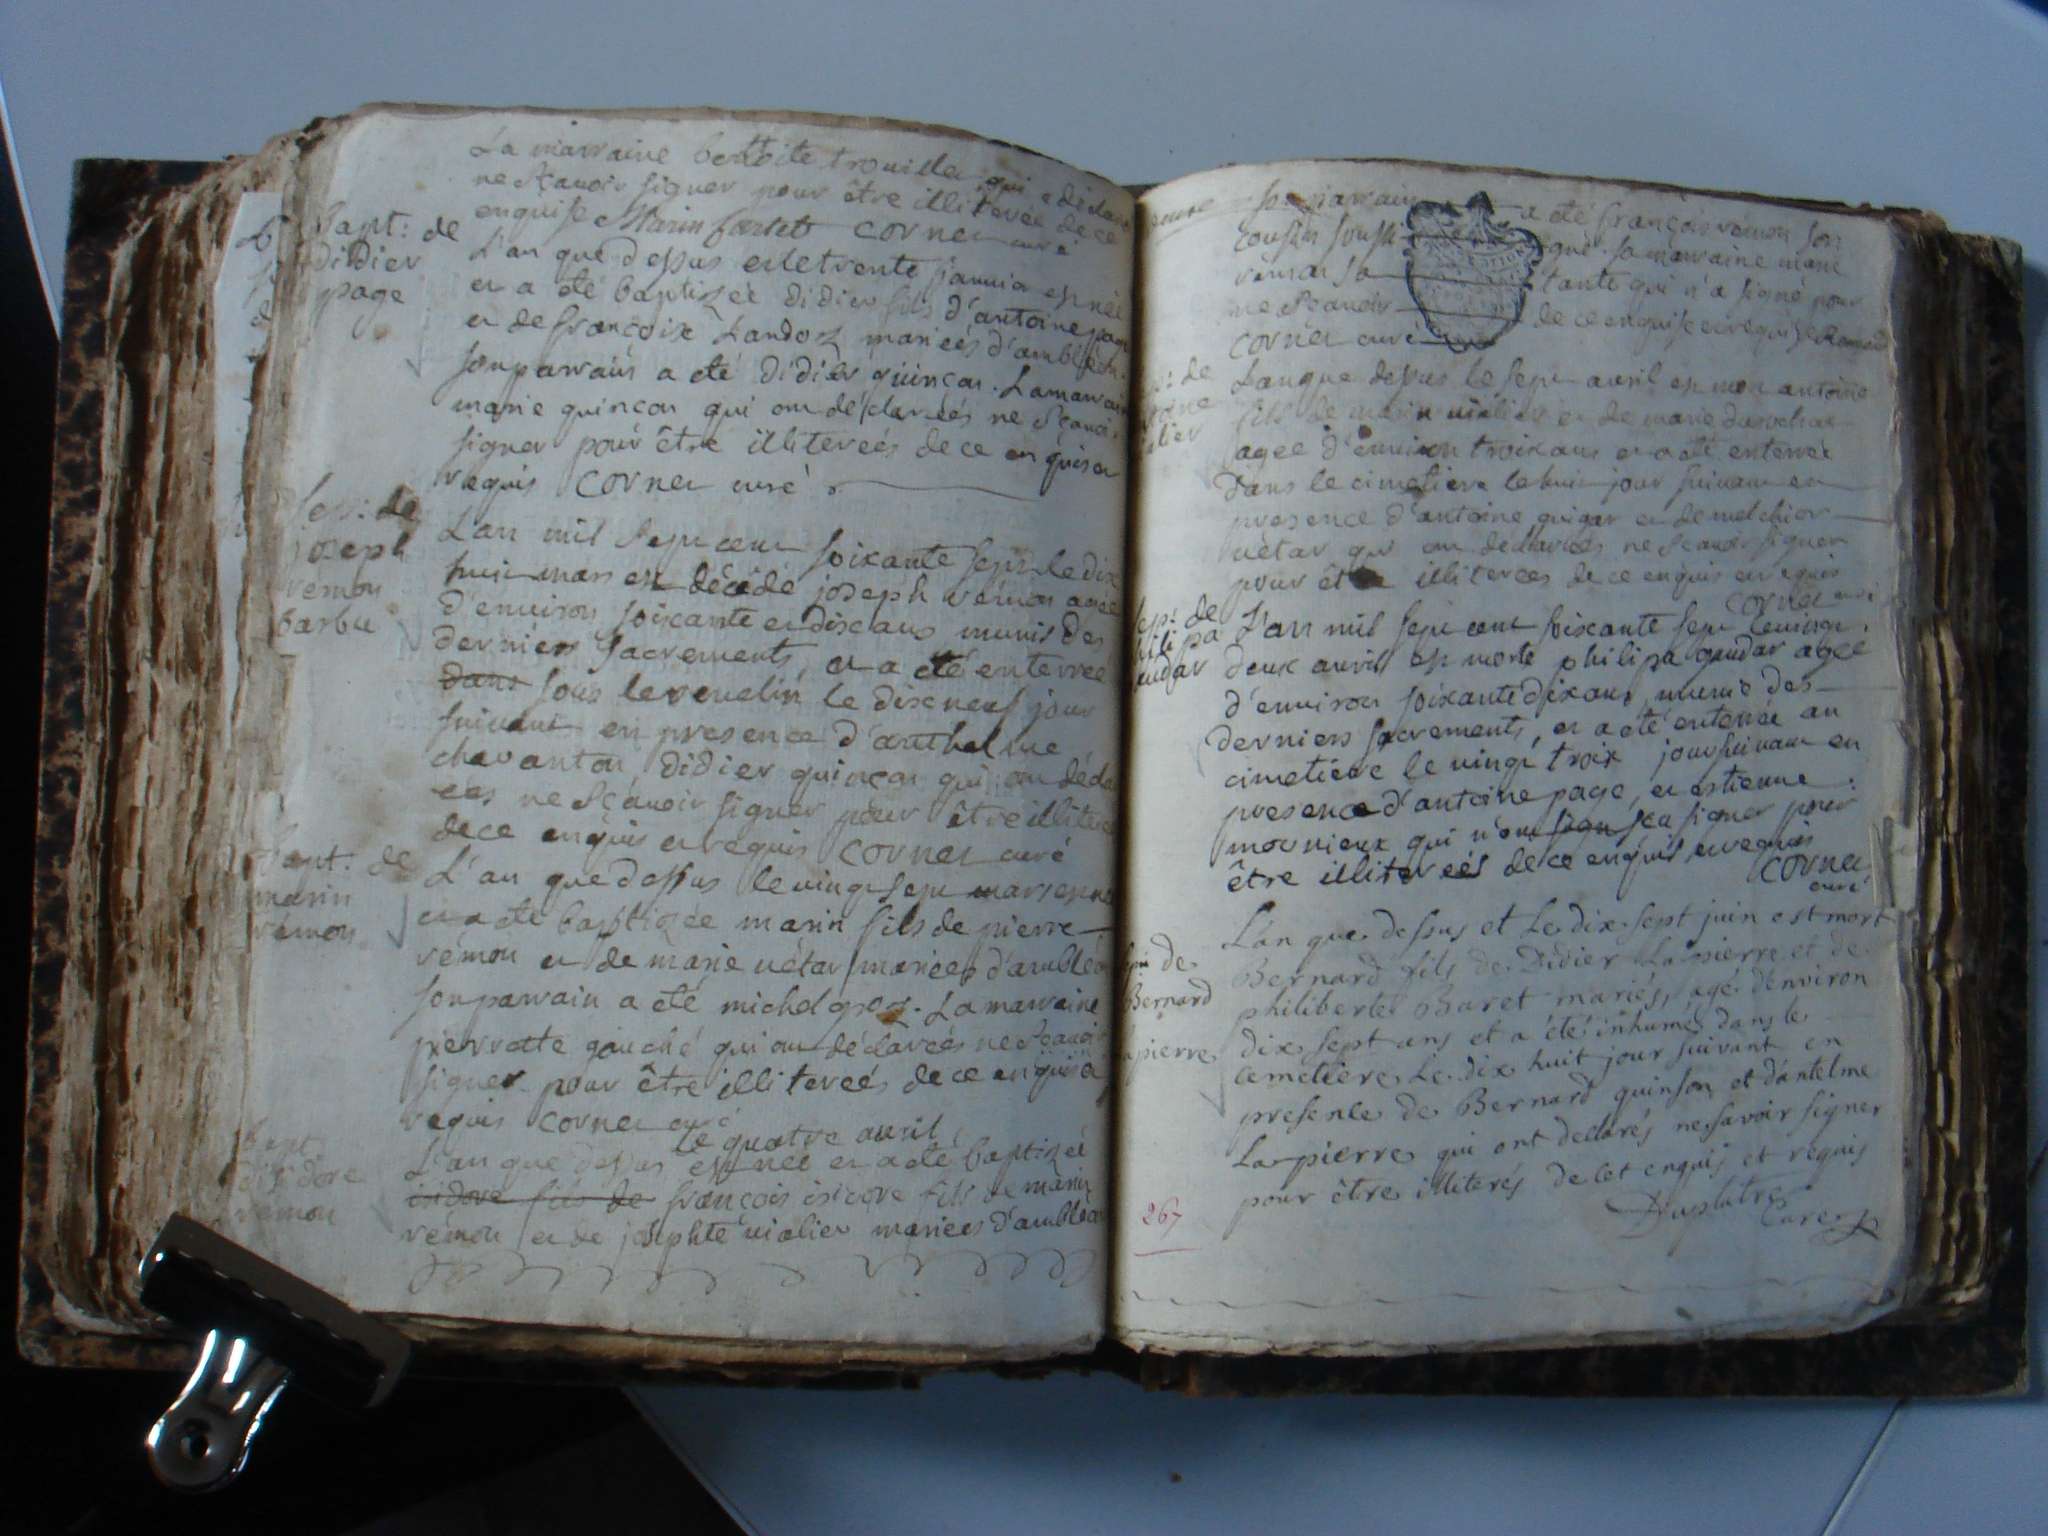 La marraine trouilla qui a déclaré
ne sçavoir signer pour être illiterée de ce
enquise Marin corner curé
bapt: de
didier
page
L'an que dessus et le trente janvier est née
et a été baptizée didier fils d'antoine page
et de françoise Landoz mariéés d'ambléon
son parrain a été didier quinçon. La marraine
marie quinçon qui ont déclaréés ne sçavoir
signer pour être illiteréés de ce enquis et
requis corner curé
sep: de
joseph
vémon
barbu
L'an mil sept cent soixante sept le dix
huit mars est décédé joseph vémon agée
d'environ soixante et dix ans munis des
derniers sacrements, et a été enterrée
dans sous le vevelin le dixneuf jour
suivant en presence d'anthelme
chavanton, didier quinçon qui ont décla
éés ne sçavoir signer pour être illiteré
de ce enquis et requis corner curé
bapt: de
marin
vémon
L'an que dessus le vingt sept mars est née
et a été baptizée marin fils de pierre
vémon et de marie vétar mariéés d'ambléon
son parrain a été michel goz. La marraine
pierrotte gauché qui ont déclaréés ne sçavoir
signer pour être illiteréés de ce enquis et
requis corner curé
bapt
d'isidore
vémon
le quatre avril
L'an que dessus est née et a été baptizéé
isidore fils de françois isidore fils de marin
vémon et de josephte violier mariéés d'ambléon
son parrain a été françois vémon son
cousin sa marraine marie
vémon sa tante qui n'a signé pour
ne sçavoir de ce enquise et requise
corner curé
sep: de
antoine
violier
L'an que dessus le sept avril est mort antoine
fils de marin violier et de marie
agée d'environ trois ans et a été enterréé
dans le cimetiere le huit jour suivant en
presence d'antoine guigar et de melchior
vétar qui ont déclaréés ne sçavoir signer
pour être illiteréés de ce enquis et requis
corner curé
sep: de
philipa
gudar
L'an mil sept cent soixante sept le vingt
deux avril est morte philipa gudar agée
d'environ soixante dix ans, munie des
derniers sacrements, et a été enterrée au
cimetiere le vingt troix jour suivant en
presence d'antoine page, et estienne
mounieux qui n'ont sign sçu signer pour
être illiteréés de ce enquis et requis
corner
curé
sepu de
Bernard
lapierre
L'an que dessus et Le dix sept juin est mort
Bernard fils de Didier Lapierre et de
philiberte Baret mariés, agé d'environ
dix sept ans et a été inhumé dans le
cemetiere Le dix huit jour suivant en
presence de Bernard quinson et d'antelme
Lapierre qui ont declarés ne savoir signer
pour être illiterés de cet enquis et requis
Duplatre
Curé
267